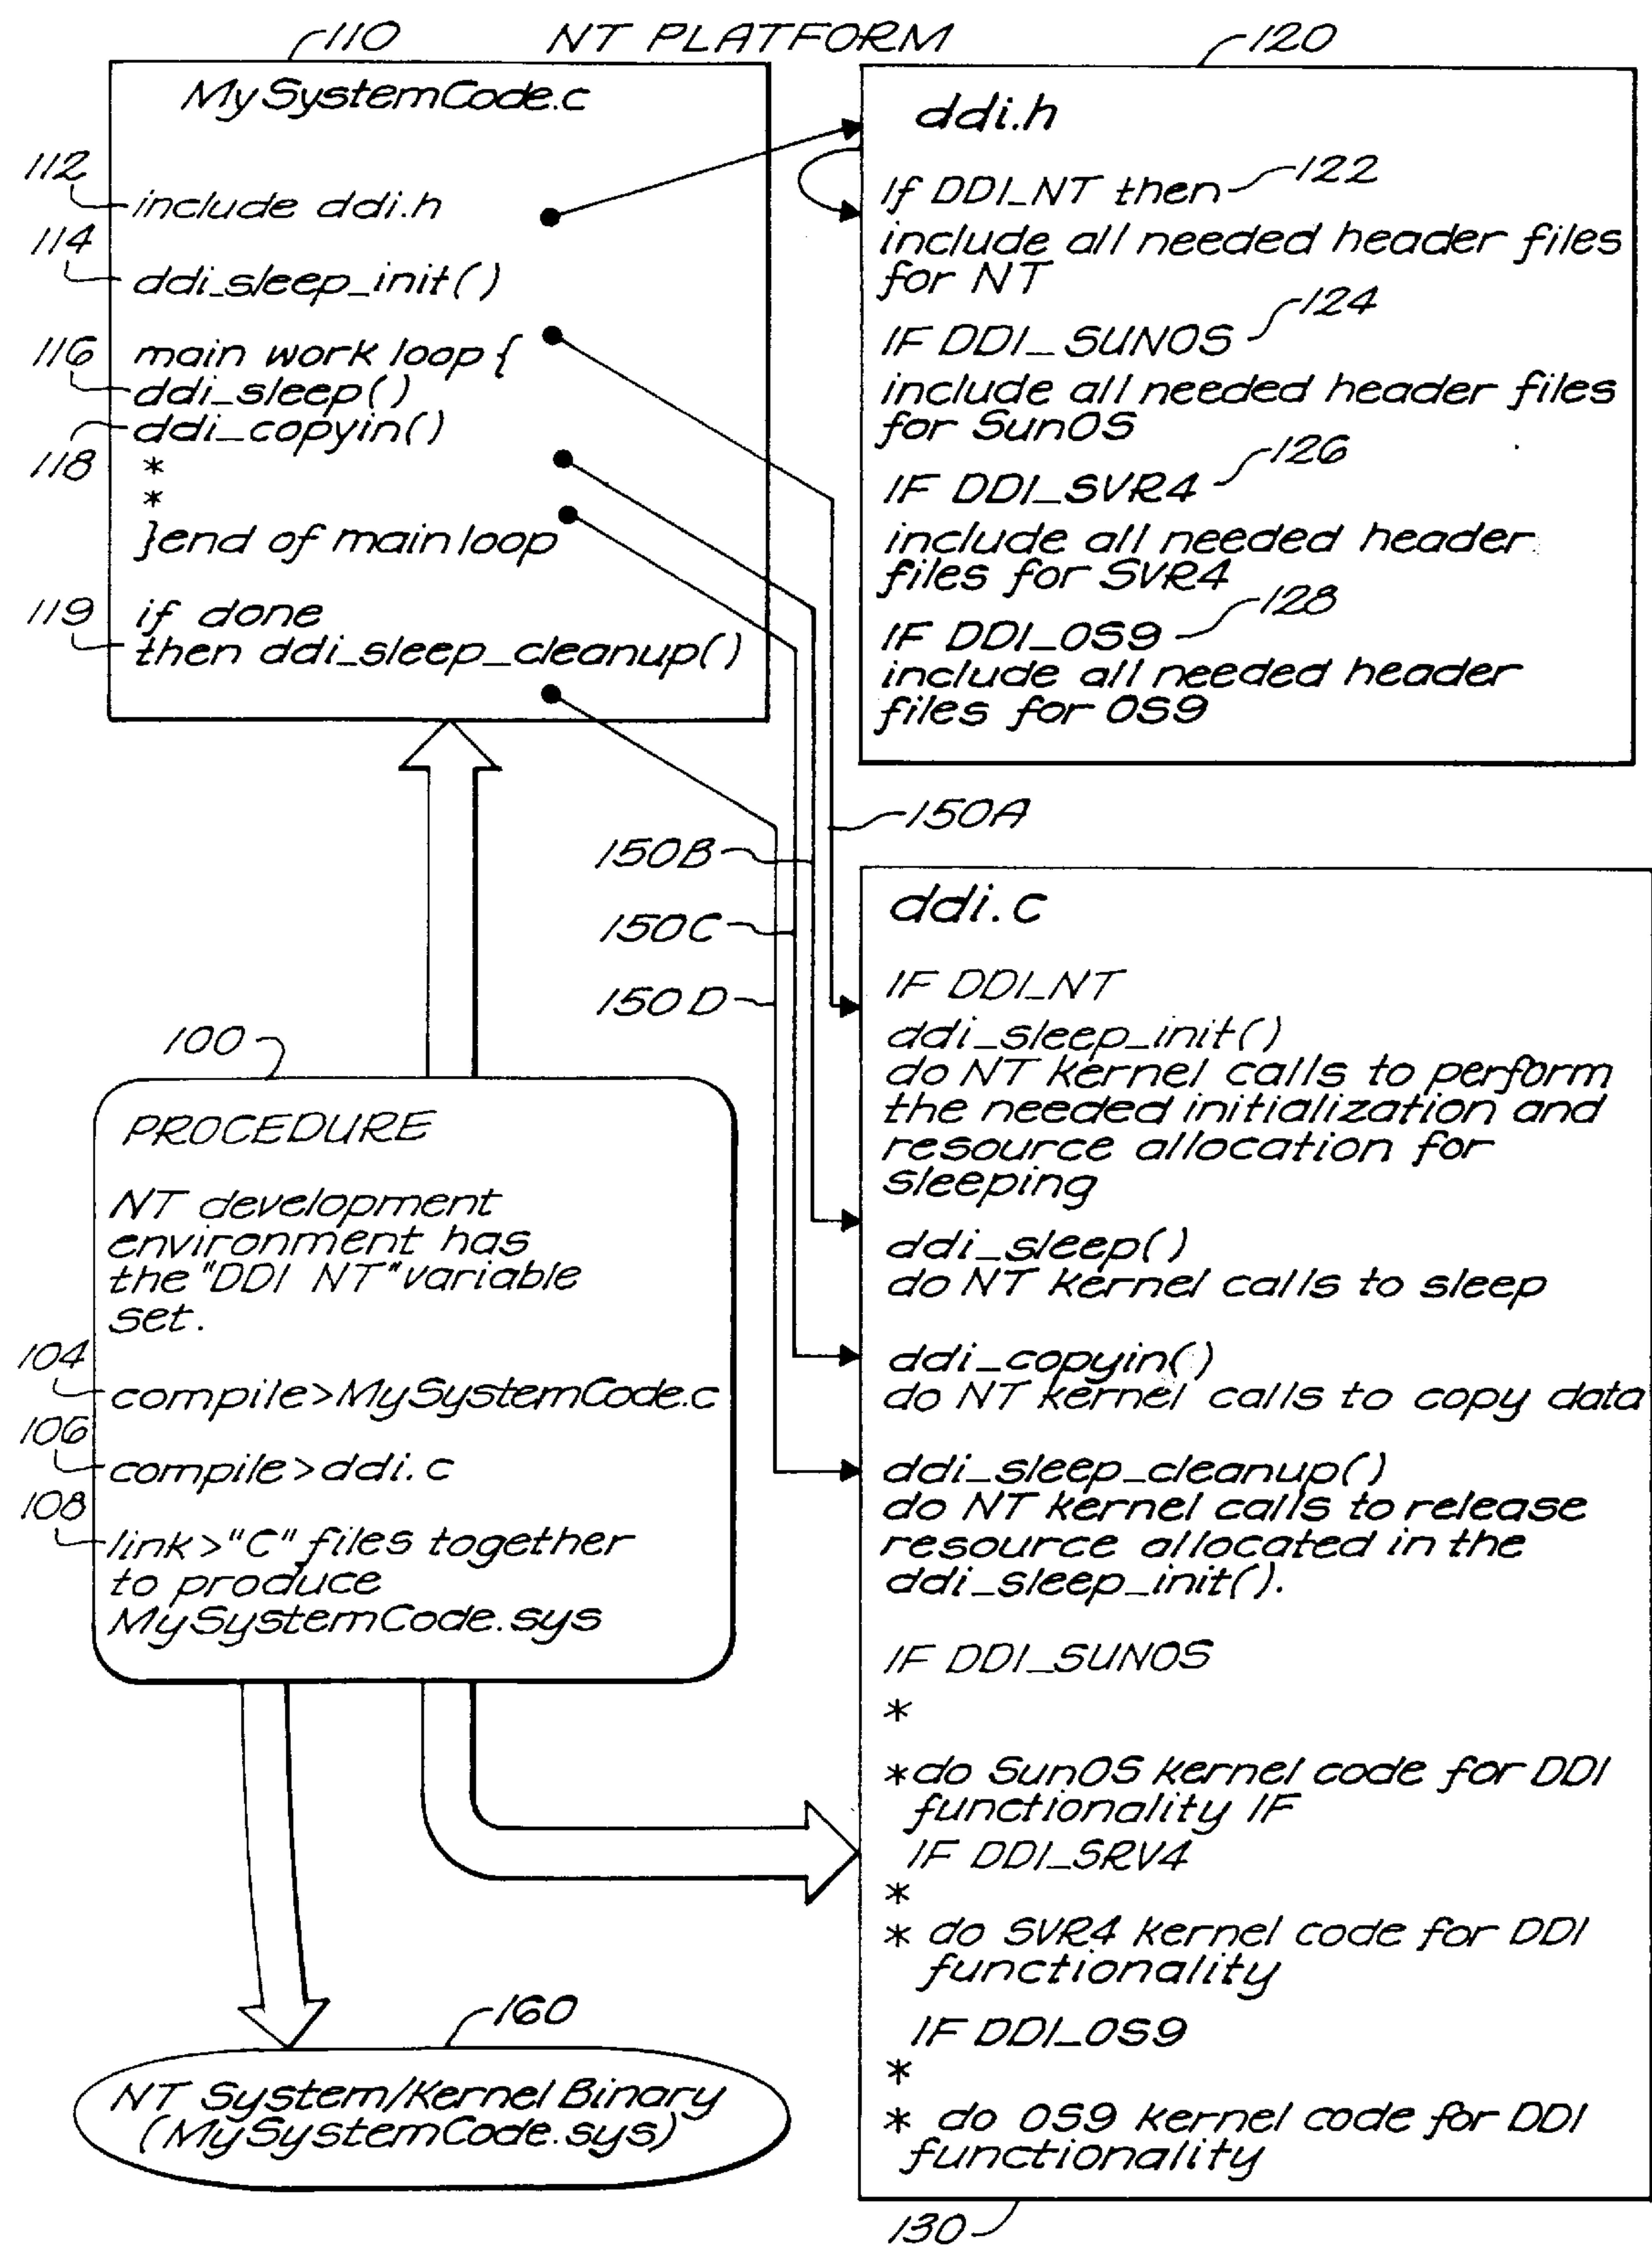 NT PLATFORM
110
MySystemCode.c
112
include ddi.h
114
ddi_sleep_init()
116
main work loop {
ddi_sleep()
ddi_copyin()
118
*
*
}end of main loop
119
if done
then ddi_sleep_cleanup()
120
ddi.h
If DDI_NT then
122
include all needed header files
for NT
124
IF DDI_SUNOS
include all needed header files
for SunOS
126
IF DDI_SVR4
include all needed header
files for SVR4
128
IF DDI_OS9
include all needed header
files for OS9
150A
150B
150C
150D
100
PROCEDURE
NT development
environment has
the "DDI NT" variable
set.
104
compile>MySystemCode.c
106
compile>ddi.c
108
link>"C" files together
to produce
MySystemCode.sys
160
NT System/Kernel Binary
(MySystemCode.sys)
ddi.c
IF DDI_NT
ddi_sleep_init()
do NT kernel calls to perform
the needed initialization and
resource allocation for
sleeping
ddi_sleep()
do NT kernel calls to sleep
ddi_copyin()
do NT kernel calls to copy data
ddi_sleep_cleanup()
do NT kernel calls to release
resource allocated in the
ddi_sleep_init().
IF DDI_SUNOS
*
*do SunOS kernel code for DDI
functionality IF
IF DDI_SRV4
*
* do SVR4 kernel code for DDI
functionality
IF DDI_OS9
*
* do OS9 kernel code for DDI
functionality
130